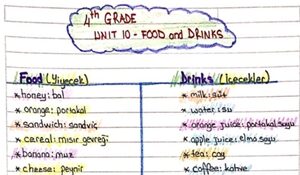 4th GRADE
UNIT 10 - FOOD and DRINKS
Food (Yiyecek)
* honey: bal
* orange: portakal
* sandwich: sandviç
* cereal: mısır gevreği
* banana: muz
* cheese: peynir
Drinks (İcecekler)
* milk: süt
* water: su
* orange juice: portakal suyu
* apple juice: elma suyu
* tea: çay
* coffee: kahve